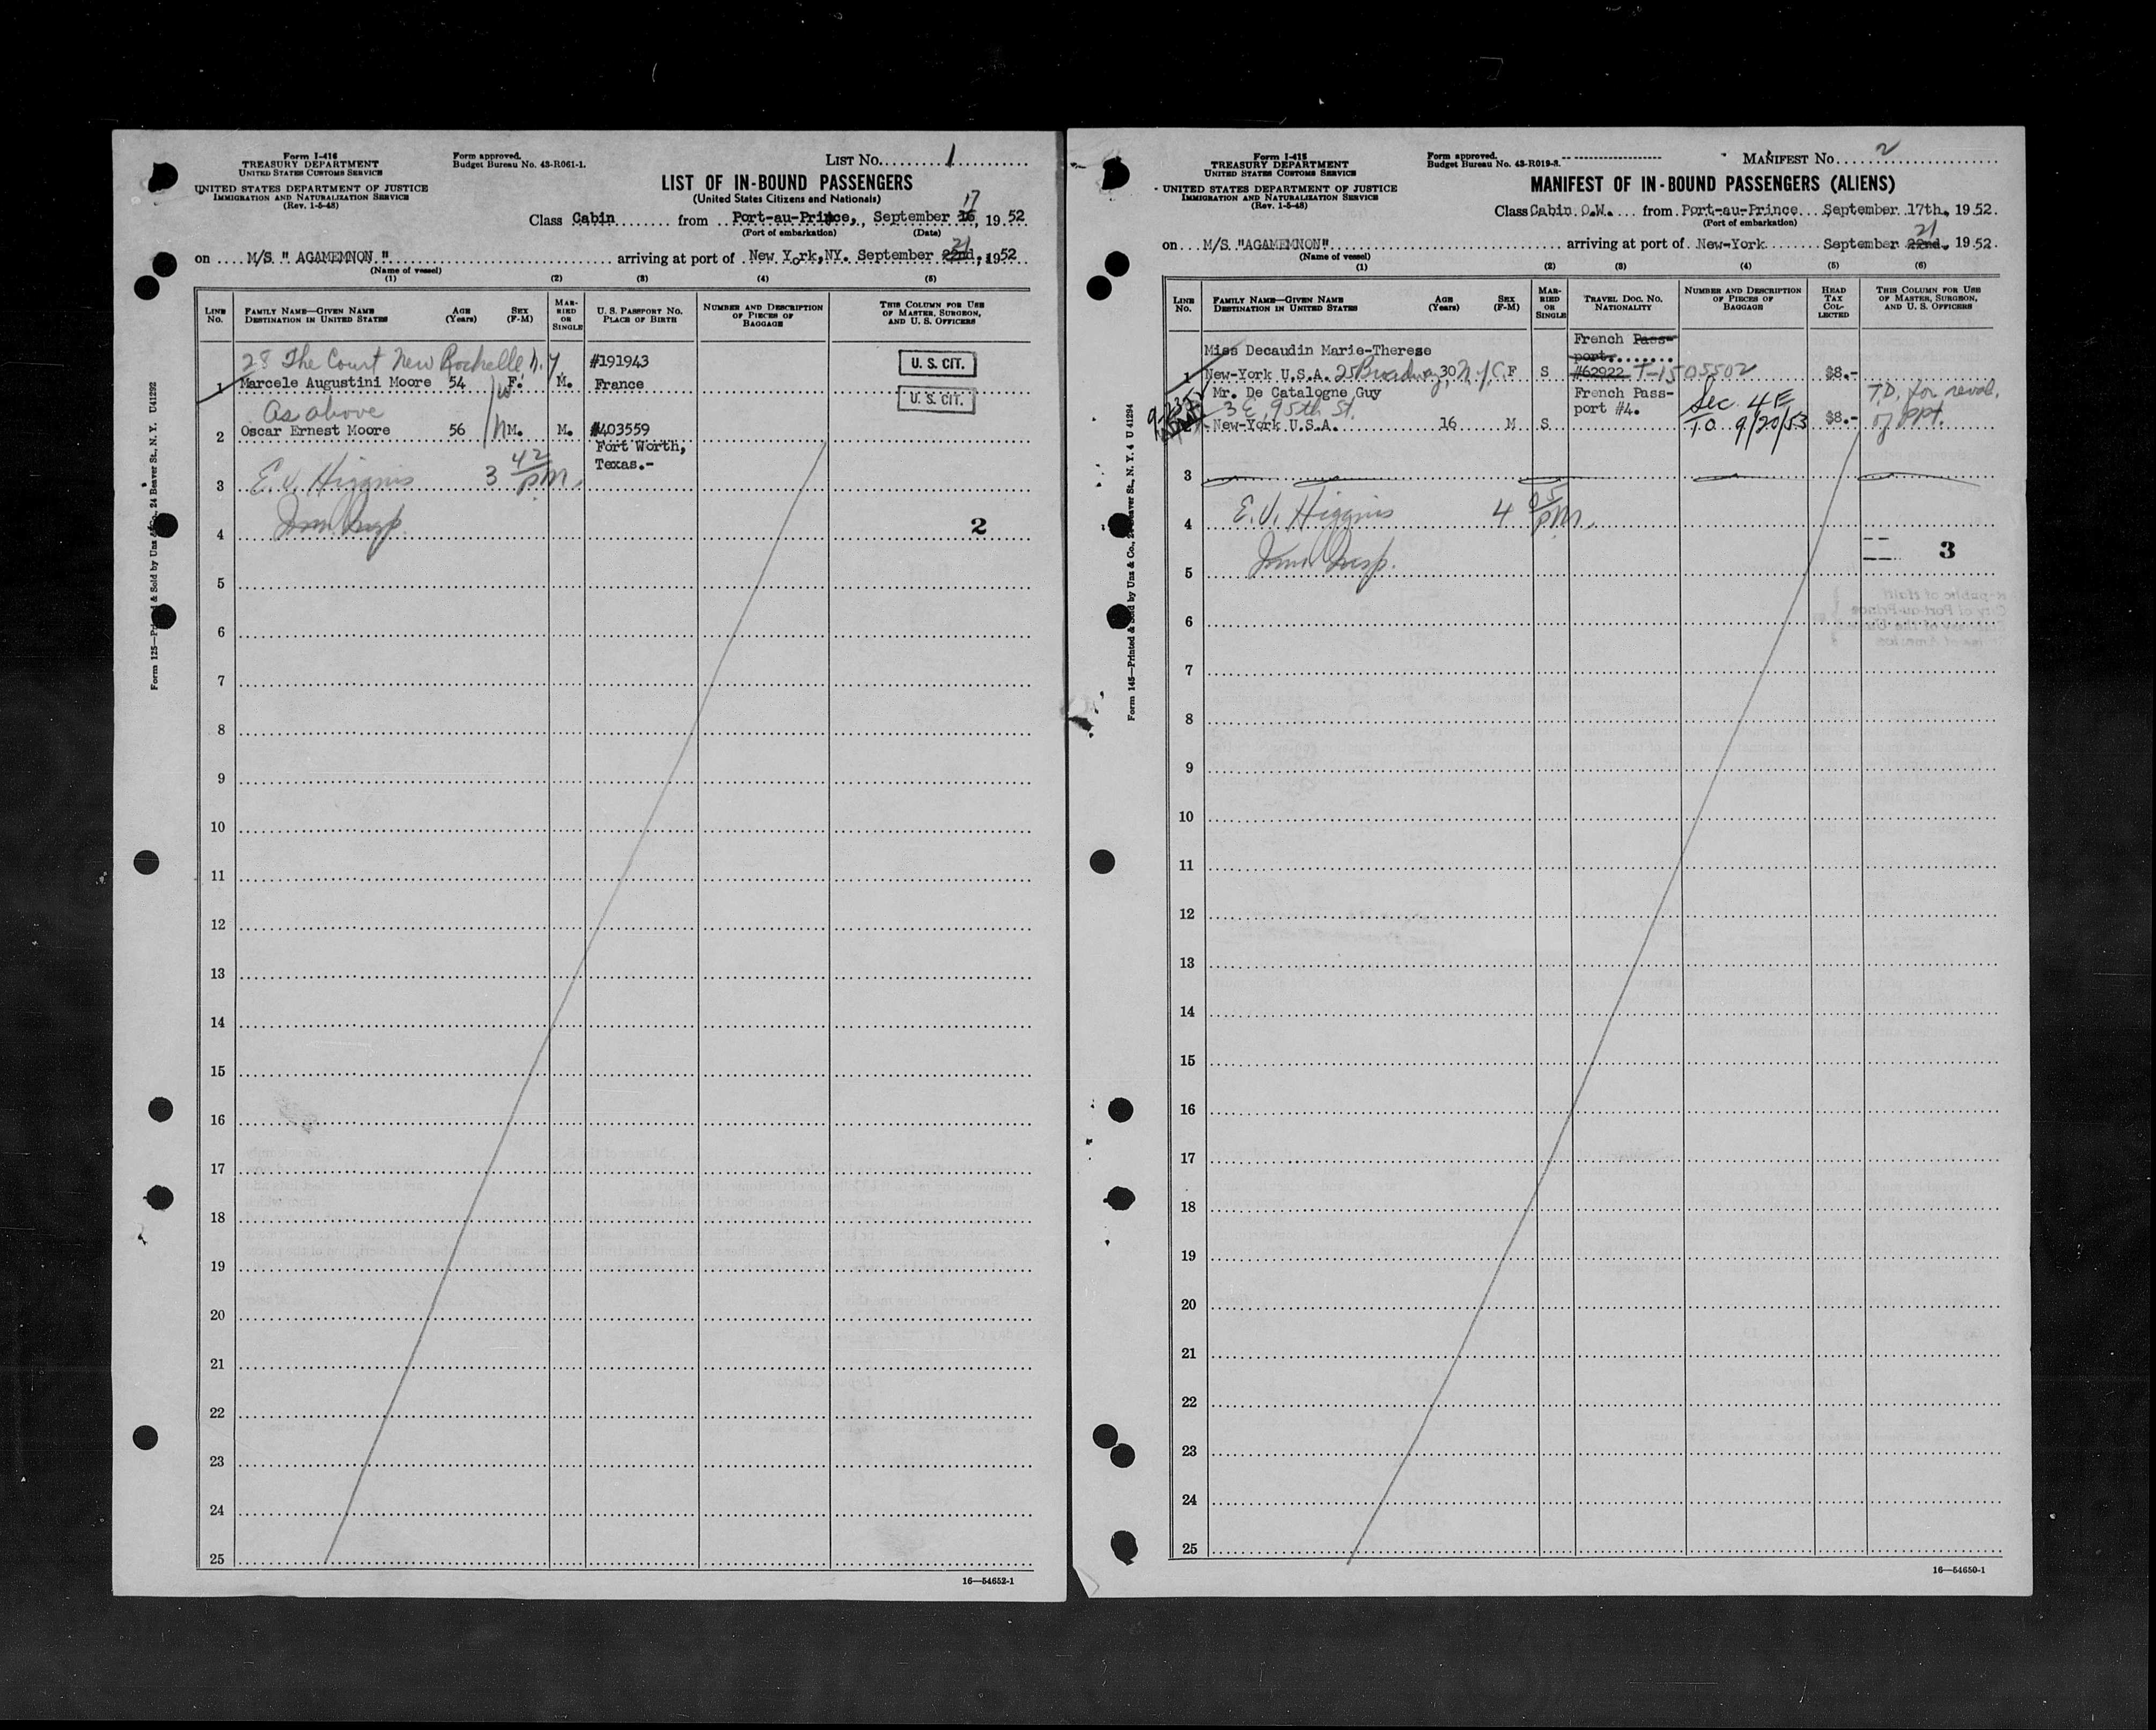 Form I-416
TREASURY DEPARTMENT
UNITED STATES CUSTOMS SERVICE
UNITED STATES DEPARTMENT OF JUSTICE
IMMIGRATION AND NATURALIZATION SERVICE
(Rev. 1-5-48)
Form approved.
Budget Bureau No. 43-R061-1.
LIST No. 1
LIST OF IN-BOUND PASSENGERS
(United States Citizens and Nationals)
17
Class Cabin from Port-au-Prince, September 16, 1952
(Port of embarkation) (Date)
21
on M/S " AGAMEMNON " arriving at port of New York, NY. September 22nd, 1952
(Name of vessel)
(1) (2) (3) (4) (5)
LINE No. FAMILY NAME—GIVEN NAME DESTINATION IN UNITED STATES AGE (Years) SEX (F-M) MARRIED OR SINGLE U. S. PASSPORT No. PLACE OF BIRTH NUMBER AND DESCRIPTION OF PIECES OF BAGGAGE THIS COLUMN FOR USE OF MASTER, SURGEON, AND U. S. OFFICERS
28 The Court New Rochelle N.Y. #191943 U. S. CIT.
1 Marcele Augustini Moore 54 W F. M. France
As above U. S. CIT.
2 Oscar Ernest Moore 56 M. M. #403559
Fort Worth,
Texas.-
3 E. J. Higgins 3 42 PM.
4 Imm. Insp. 2
5
6
7
8
9
10
11
12
13
14
15
16
17
18
19
20
21
22
23
24
25
16—54652-1
Form 125—Printed & Sold by Unz & Co., 24 Beaver St., N. Y. U41292
Form I-415
TREASURY DEPARTMENT
UNITED STATES CUSTOMS SERVICE
UNITED STATES DEPARTMENT OF JUSTICE
IMMIGRATION AND NATURALIZATION SERVICE
(Rev. 1-5-48)
Form approved.
Budget Bureau No. 43-R019-3.
MANIFEST No. 2
MANIFEST OF IN-BOUND PASSENGERS (ALIENS)
Class Cabin O.W. from Port-au-Prince September 17th, 1952.
(Port of embarkation)
21
on M/S. "AGAMEMNON" arriving at port of New-York September 22nd, 1952.
(Name of vessel)
(1) (2) (3) (4) (5) (6)
LINE No. FAMILY NAME—GIVEN NAME DESTINATION IN UNITED STATES AGE (Years) SEX (F-M) MARRIED OR SINGLE TRAVEL DOC. No. NATIONALITY NUMBER AND DESCRIPTION OF PIECES OF BAGGAGE HEAD TAX COLLECTED THIS COLUMN FOR USE OF MASTER, SURGEON, AND U. S. OFFICERS
French Pass-
Miss Decaudin Marie-Therese port
1 New-York U.S.A. 25 Broadway N.Y.C. 30 F S #62922 T-1505502 $8.-
Mr. De Catalogne Guy French Pass- Sec. 4E T.D. for reval.
3 E. 95th St. port #4.
New-York U.S.A. 16 M S To 9/20/53 $8.- of ppt.
3
4 E. J. Higgins 4 05 PM.
5 Imm. Insp. 3
6
7
8
9
10
11
12
13
14
15
16
17
18
19
20
21
22
23
24
25
16—54650-1
Form 145—Printed & Sold by Unz & Co., 24 Beaver St., N. Y. 4 U 41294